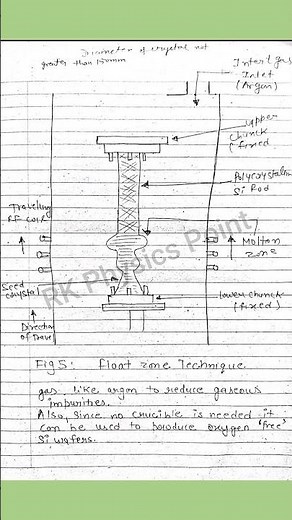 Diameter of crystal not
greater than 150mm
Intert gas
Inlet
(Argon)
upper
chunck
(fixed
Polycrystalin
Si Rod
Traveling
RF Coil
Molton
zone
Seed
crystal
lower chunck
(fixed)
Direction
of Trave
RK Physics Point
Fig 5: Float zone Technique
gas like argon to reduce gaseous
impurities.
Also, since no crucible is needed it
can be used to produce oxygen 'free'
Si wafers.